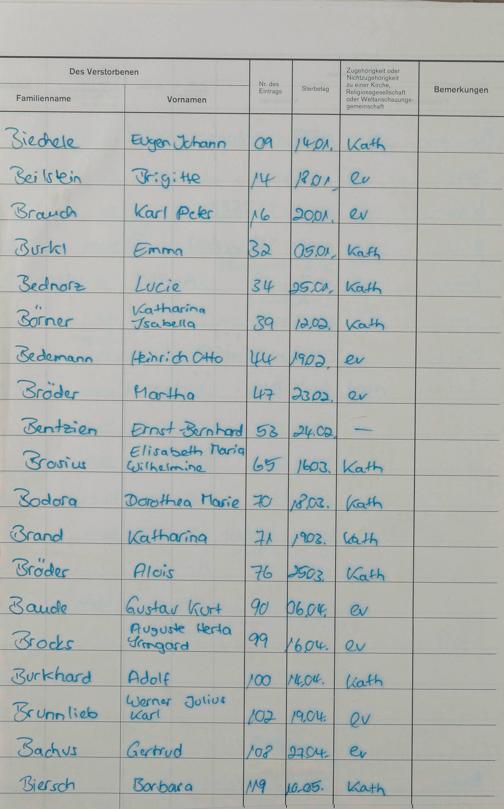 Des Verstorbenen
Familienname Vornamen Nr. des Eintrags Sterbetag Zugehörigkeit oder Nichtzugehörigkeit zu einer Kirche, Religionsgesellschaft oder Weltanschauungsgemeinschaft Bemerkungen
Biechele Eugen Johann 09 14.01. Kath
Beilstein Brigitte 14 18.01. ev
Brauch Karl Peter 16 20.01. ev
Burkl Emma 32 05.01. Kath
Bednorz Lucie 34 25.01. Kath
Börner Katharina Isabella 39 12.02. Kath
Bedemann Heinrich Otto 44 19.02. ev
Bröder Martha 47 23.02. ev
Bentzien Ernst-Bernhard 53 24.02. —
Brosius Elisabeth Maria Wilhelmine 65 16.03. Kath
Bodora Dorothea Marie 70 18.03. Kath
Brand Katharina 71 19.03. Kath
Bröder Alois 76 25.03. Kath
Baude Gustav Kurt 90 06.04. ev
Brocks Auguste Herta Irmgard 99 16.04. ev
Burkhard Adolf 100 14.04. Kath
Brunnlieb Werner Julius Karl 102 19.04. ev
Bachus Gertrud 108 27.04. ev
Biersch Barbara 119 10.05. Kath